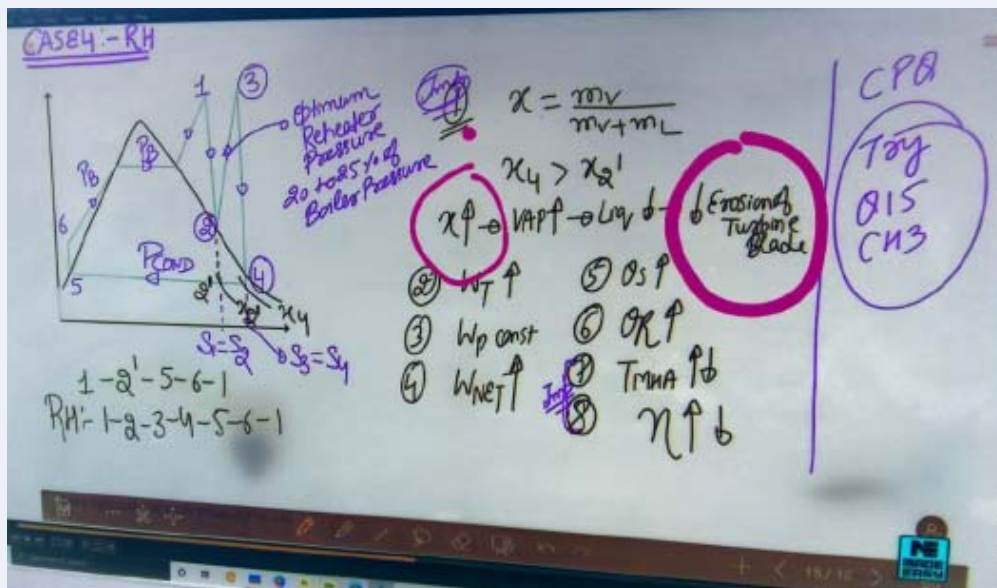 CASE4:- RH
1
3
Optimum
Reheater
Pressure
20 to 25% of
Boiler Pressure
PB
PB
6
2
5
PCOND
4
2'
x2'
x4
S1=S2
S3=S4
1-2'-5-6-1
RH:- 1-2-3-4-5-6-1
Imp
1
x = mv / mv+mL
x4 > x2'
x↑ → VAP↑ → Liq ↓ - ↓ Erosion of
Turbine
Blade
② WT ↑
③ Wp const
④ WNET ↑
⑤ QS ↑
⑥ QR ↑
Imp
⑦ TMHA ↑↓
⑧ η ↑↓
CPQ
Try
Q15
CH3
18/18
MADE
EASY